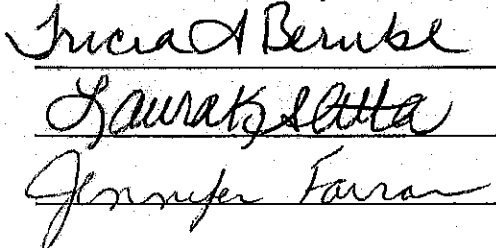 Tricia A Berube
Laura K Slatta
Jennifer Farran